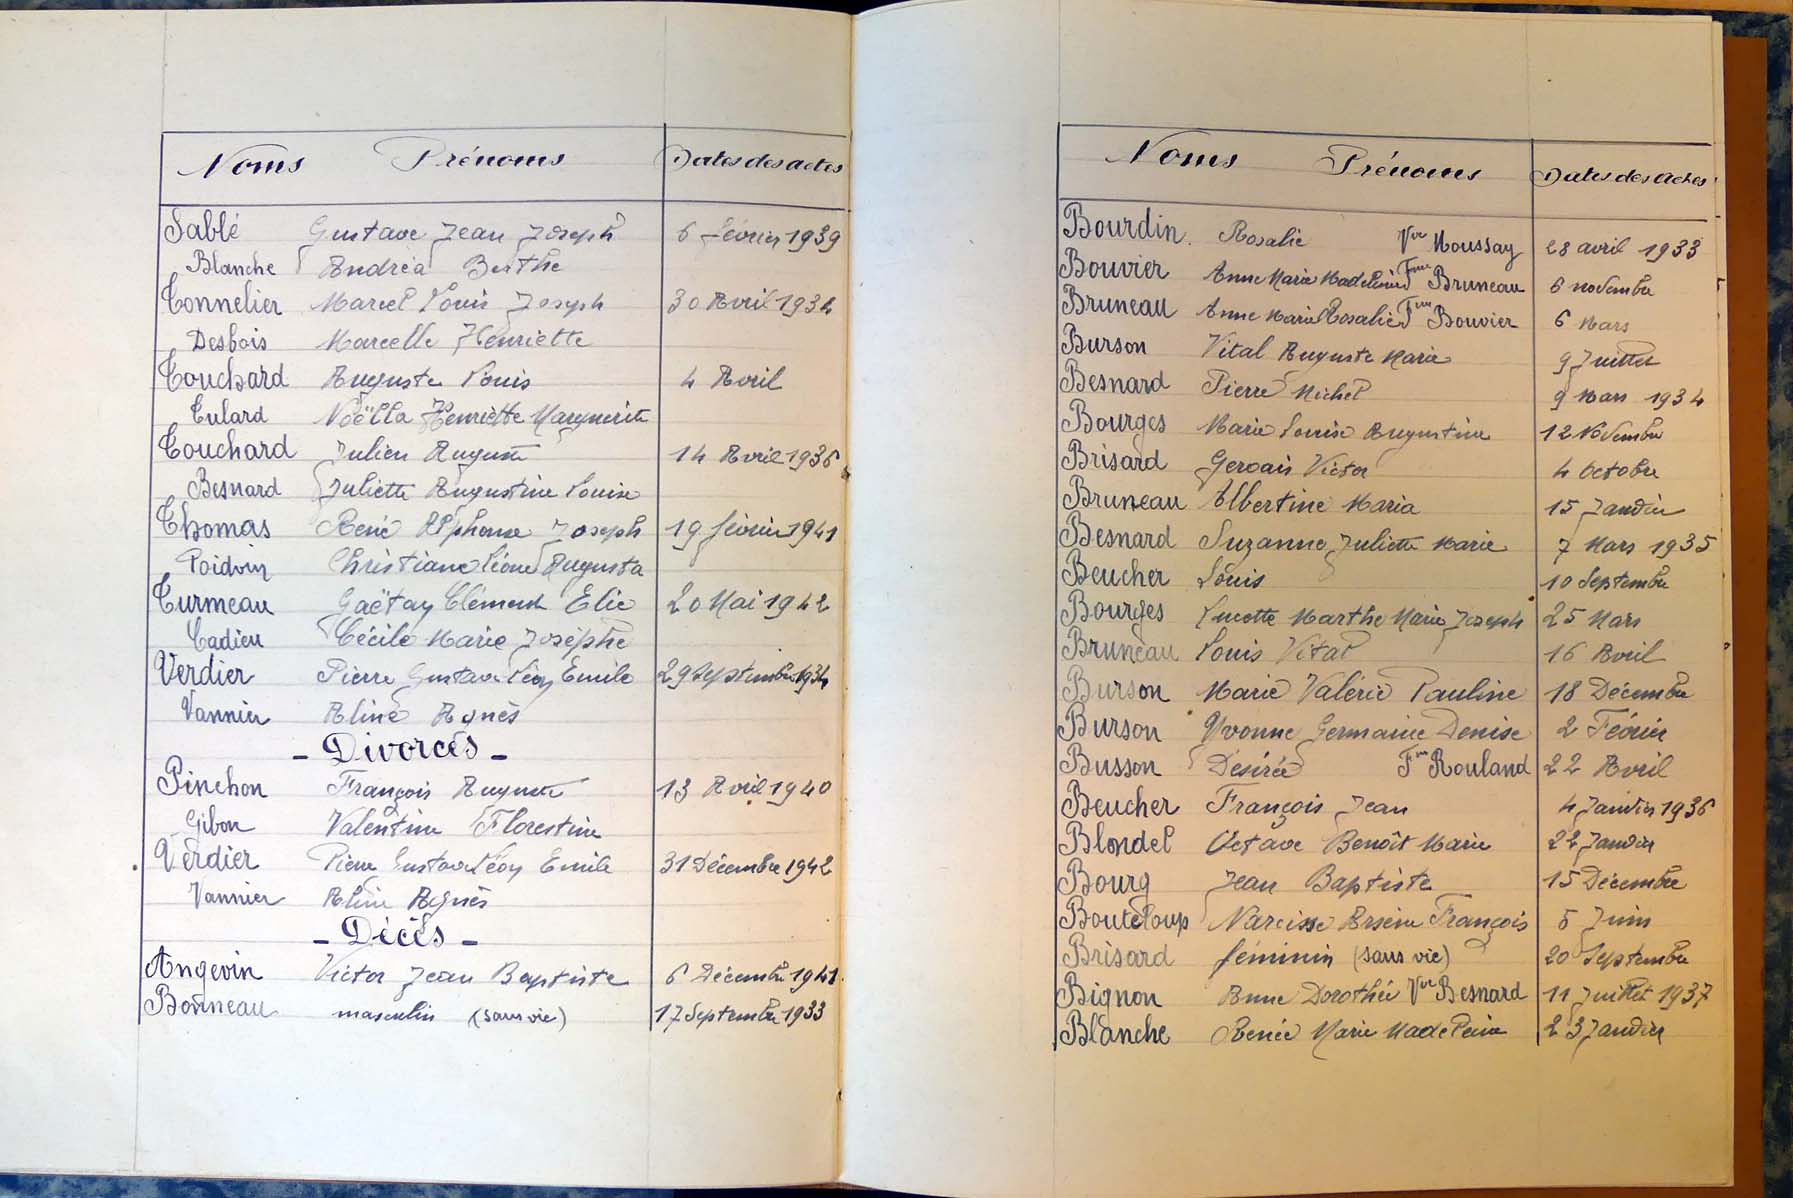 Noms Prénoms Dates des actes
Sablé Gustave Jean Joseph 6 février 1939
Blanche Andréa Berthe
Tonnelier Marcel Louis Joseph 30 Avril 1934
Desbois Marcelle Henriette
Touchard Auguste Louis 4 Avril
Tulard Noëlla Henriette Marguerite
Touchard Julien Auguste 14 Avril 1936
Besnard Juliette Augustine Louise
Thomas René Alphonse Joseph 19 février 1941
Poidvin Christiane Léone Augusta
Turmeau Gaëtan Clément Elie 20 Mai 1942
Cadieu Cécile Marie Josèphe
Verdier Pierre Gustave Léon Emile 29 Septembre 1934
Vannier Aline Agnès
- Divorcés -
Pinchon François Auguste 13 Avril 1940
Gibon Valentine Florestine
Verdier Pierre Gustave Léon Emile 31 Décembre 1942
Vannier Aline Agnès
- Décès -
Angevin Victor Jean Baptiste 6 Décembre 1941
Bonneau masculin (sans vie) 17 Septembre 1933
Noms Prénoms Dates des actes
Bourdin Rosalie Vve Moussay 28 avril 1933
Bouvier Anne Marie Madeleine Fme Bruneau 6 novembre
Bruneau Anne Marie Rosalie Fme Bouvier 6 Mars
Burson Vital Auguste Marie 9 Juillet
Besnard Pierre Michel 9 Mars 1934
Bourges Marie Louise Augustine 12 Novembre
Brisard Gervais Victor 4 Octobre
Bruneau Albertine Maria 15 Janvier
Besnard Suzanne Juliette Marie 7 Mars 1935
Beucher Louis 10 Septembre
Bourges Lucette Marthe Marie Joseph 25 Mars
Bruneau Louis Vital 16 Avril
Burson Marie Valérie Pauline 18 Décembre
Burson Yvonne Germaine Denise 2 Février
Busson Desirée Fme Rouland 22 Avril
Beucher François Jean 4 Janvier 1936
Blondel Octave Benoît Marie 22 Janvier
Bourg Jean Baptiste 15 Décembre
Bouteloup Narcisse Arsène François 5 Juin
Brisard féminin (sans vie) 20 Septembre
Bignon Anne Dorothée Vve Besnard 11 Juillet 1937
Blanche Renée Marie Madeleine 23 Janvier